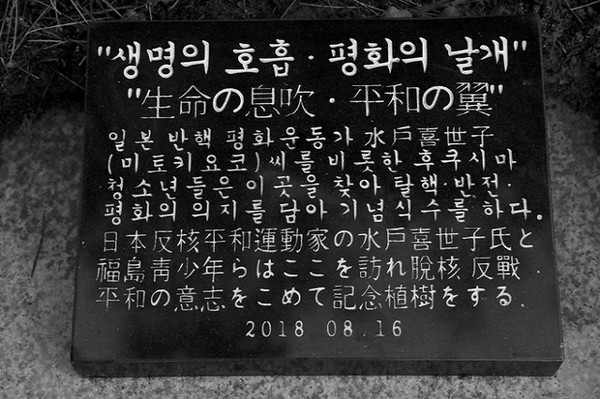 "생명의 호흡·평화의 날개"
"生命の息吹・平和の翼"
일본 반핵 평화운동가 水戶喜世子
(미토키요코)씨를 비롯한 후쿠시마
청소년들은 이 곳을 찾아 탈핵·반전·
평화의 의지를 담아 기념식수를 하다.
日本反核平和運動家の水戶喜世子氏と
福島靑少年らはここを訪れ脫核 反戰
平和の意志をこめて記念植樹をする.
2018 08.16